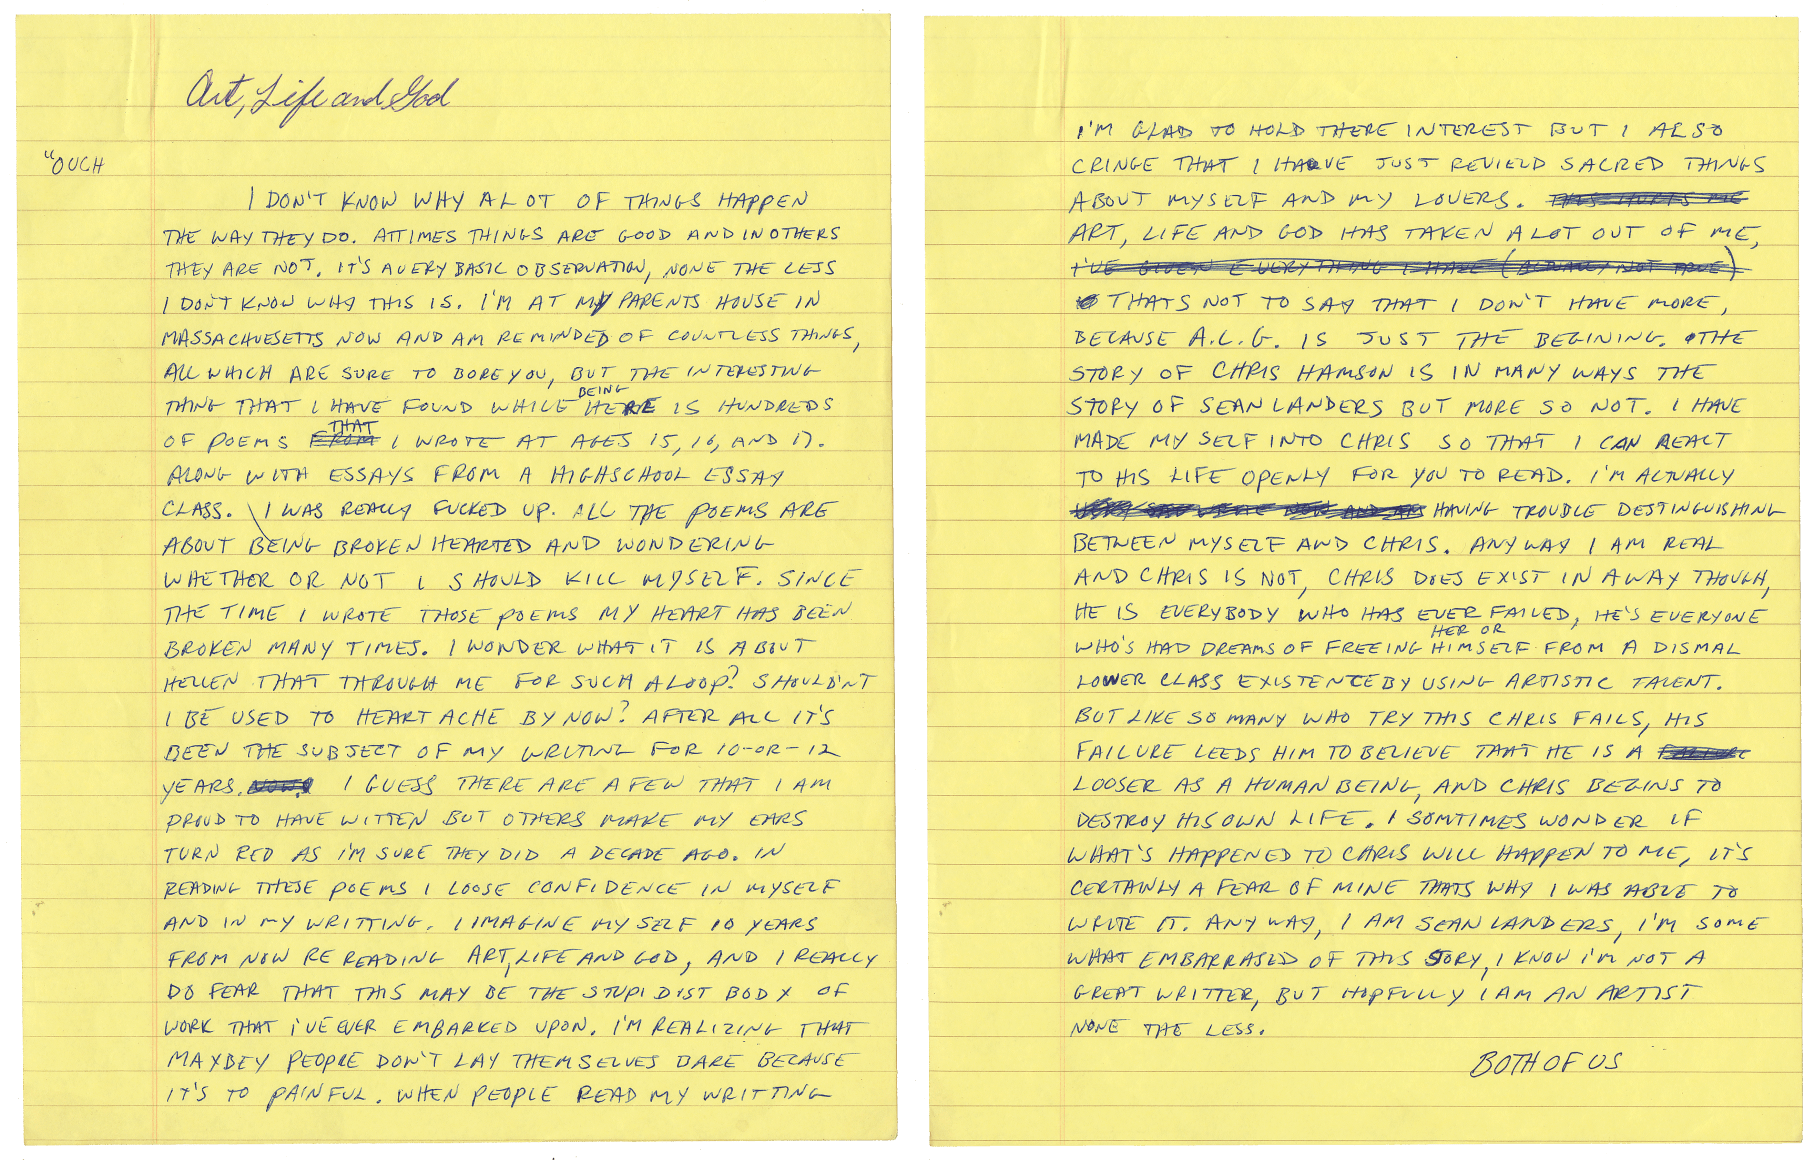 Art, Life and God
"OUCH
I DON'T KNOW WHY A LOT OF THINGS HAPPEN
THE WAY THEY DO. AT TIMES THINGS ARE GOOD AND IN OTHERS
THEY ARE NOT. IT'S A VERY BASIC OBSERVATION, NONE THE LESS
I DON'T KNOW WHY THIS IS. I'M AT MY PARENTS HOUSE IN
MASSACHUESETTS NOW AND AM REMINDED OF COUNTLESS THINGS,
ALL WHICH ARE SURE TO BORE YOU, BUT THE INTERESTING
THING THAT I HAVE FOUND WHILE BEING HERE IS HUNDREDS
OF POEMS FROM THAT I WROTE AT AGES 15, 16, AND 17.
ALONG WITH ESSAYS FROM A HIGHSCHOOL ESSAY
CLASS. \ I WAS REALLY FUCKED UP. ALL THE POEMS ARE
ABOUT BEING BROKEN HEARTED AND WONDERING
WHETHER OR NOT I SHOULD KILL MYSELF. SINCE
THE TIME I WROTE THOSE POEMS MY HEART HAS BEEN
BROKEN MANY TIMES. I WONDER WHAT IT IS ABOUT
HELLEN THAT THROUGH ME FOR SUCH A LOOP? SHOULDN'T
I BE USED TO HEART ACHE BY NOW? AFTER ALL IT'S
BEEN THE SUBJECT OF MY WRITING FOR 10-OR-12
YEARS. NOW? I GUESS THERE ARE A FEW THAT I AM
PROUD TO HAVE WITTEN BUT OTHERS MAKE MY EARS
TURN RED AS I'M SURE THEY DID A DECADE AGO. IN
READING THESE POEMS I LOOSE CONFIDENCE IN MYSELF
AND IN MY WRITTING. I IMAGINE MY SELF 10 YEARS
FROM NOW RE READING ART, LIFE AND GOD, AND I REALLY
DO FEAR THAT THIS MAY BE THE STUPIDIST BODY OF
WORK THAT I'VE EVER EMBARKED UPON. I'M REALIZING THAT
MAYBEY PEOPLE DON'T LAY THEMSELVES BARE BECAUSE
IT'S TO PAINFUL. WHEN PEOPLE READ MY WRITTING
I'M GLAD TO HOLD THERE INTEREST BUT I ALSO
CRINGE THAT I HAVE JUST REVIELD SACRED THINGS
ABOUT MYSELF AND MY LOVERS. THIS HURTS ME
ART, LIFE AND GOD HAS TAKEN A LOT OUT OF ME,
I'VE GIVEN EVERYTHING I HAVE (ACTUALLY NOT TRUE)
THATS NOT TO SAY THAT I DON'T HAVE MORE,
BECAUSE A.L.G. IS JUST THE BEGINING. THE
STORY OF CHRIS HAMSON IS IN MANY WAYS THE
STORY OF SEAN LANDERS BUT MORE SO NOT. I HAVE
MADE MY SELF INTO CHRIS SO THAT I CAN REACT
TO HIS LIFE OPENLY FOR YOU TO READ. I'M ACTUALLY
HAVING TROUBLE DESTINGUISHING
BETWEEN MYSELF AND CHRIS. ANYWAY I AM REAL
AND CHRIS IS NOT, CHRIS DOES EXIST IN A WAY THOUGH,
HE IS EVERYBODY WHO HAS EVER FAILED, HE'S EVERYONE
WHO'S HAD DREAMS OF FREEING HER OR HIMSELF FROM A DISMAL
LOWER CLASS EXISTENCE BY USING ARTISTIC TALENT.
BUT LIKE SO MANY WHO TRY THIS CHRIS FAILS, HIS
FAILURE LEEDS HIM TO BELIEVE THAT HE IS A FAILURE
LOOSER AS A HUMAN BEING, AND CHRIS BEGINS TO
DESTROY HIS OWN LIFE. I SOMTIMES WONDER IF
WHAT'S HAPPENED TO CHRIS WILL HAPPEN TO ME, IT'S
CERTAINLY A FEAR OF MINE THATS WHY I WAS ABLE TO
WRITE IT. ANY WAY, I AM SEAN LANDERS, I'M SOME
WHAT EMBARRASED OF THIS STORY, I KNOW I'M NOT A
GREAT WRITTER, BUT HOPFULLY I AM AN ARTIST
NONE THE LESS.
BOTH OF US